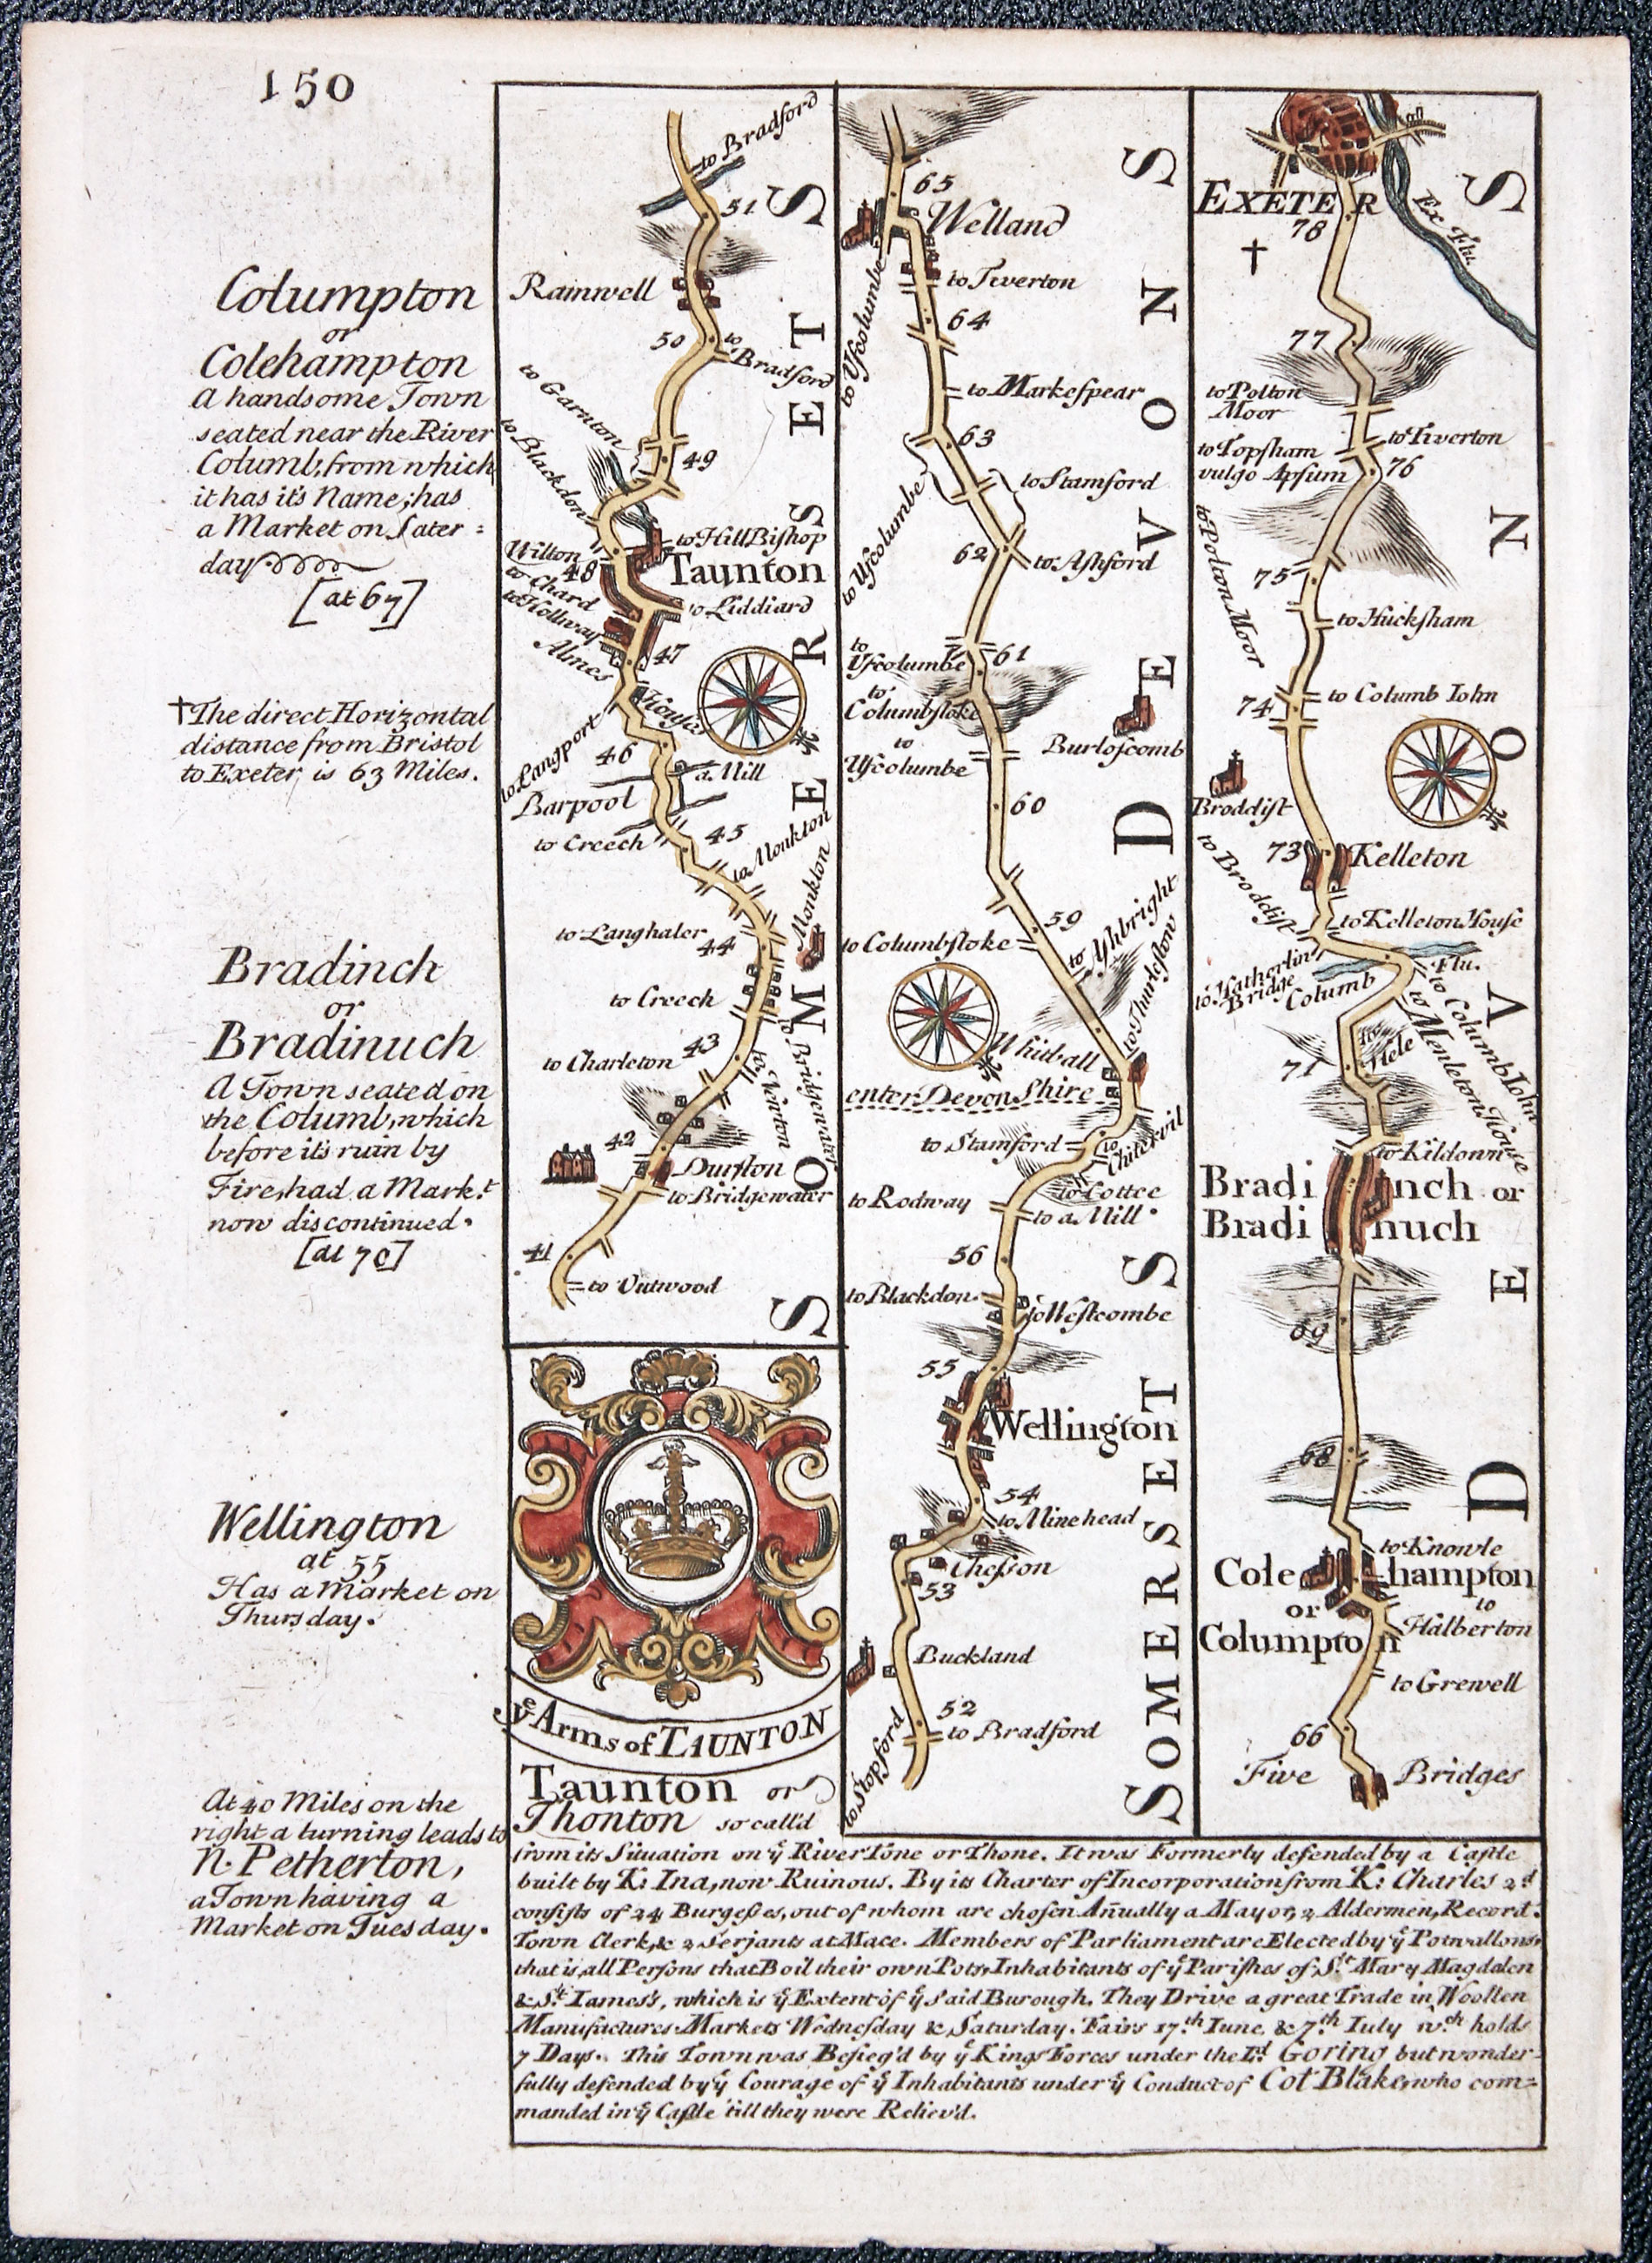 150
Columpton
or
Colehampton
A handsome Town
seated near the River
Columb, from which
it has it's Name; has
a Market on Sater=
day
[at 67]
✝The direct Horizontal
distance from Bristol
to Exeter, is 63 Miles.
Bradinch
or
Bradinuch
A Town seated on
the Columb, which
before it's ruin by
Fire, had a Mark.t
now discontinued.
[at 70]
Wellington
at 55
Has a Market on
Thursday.
At 40 Miles on the
right a turning leads to
N. Petherton,
a Town having a
Market on Tuesday.
to Bradford
51
Rainwell
50
to Bradford
to Garnton
to Blackdon
49
to Hill Bishop
Wilton
48
Taunton
to Chard
to Liddiard
to Hollway
47
Almes House
to Langport
46
a Mill
Barpool
45
to Creech
to Monkton
Monkton
to Langhaler
44
to Creech
43
to Charleton
to Newton
to Bridgewater
42
Durston
to Bridgewater
41
to Outwood
SOMERSETS
ye Arms of TAUNTON
65
Welland
to Tiverton
to Ufcolumbe
64
to Markespear
63
to Stamford
to Ufcolumbe
62
to Ashford
61
to Ufcolumbe
to Columbstoke
Burloscomb
to Ufcolumbe
60
59
to Columbstoke
to Ashbright
to Thurleston
Whitball
enter Devon Shire
to Stamford
to Chitervil
to Cottee
to Rodway
to a Mill
56
to Blackdon
to Westcombe
55
Wellington
54
to Minehead
Chesson
53
Buckland
52
to Bradford
to Stopford
DEVONS
SOMERSETS
EXETER
78
✝
Ex Flu.
77
to Polton Moor
to Tiverton
to Topsham
vulgo Apsum
76
to Polton Moor
75
to Hucksham
74
to Columb Iohn
Broddist
73
Kelleton
to Broddist
to Kelleton House
to Hatherlin Bridge
Columb Flu.
to Columb Iohn
to Menleton House
to Hele
71
to Kildown
Bradinch or
Bradinuch
69
68
to Knowle
Colehampton
or
Columpton
to Halberton
to Grewell
66
Five Bridges
DEVONS
Taunton or
Thonton so call'd
from its Situation on ye River Tone or Thone. It was Formerly defended by a Castle
built by K: Ina, now Ruinous. By its Charter of Incorporation from K: Charles 2d
consists of 24 Burgesses, out of whom are chosen Añually a Mayor, 2 Aldermen, Record.r
Town Clerk, & 2 Serjants at Mace. Members of Parliament are Elected by ye Potwallons,
that is, all Persons that Boil their own Pots, Inhabitants of ye Parishes of St. Mary Magdalen
& St. Iames's, which is ye Extent of ye said Burough. They Drive a great Trade in Woollen
Manufactures. Markets Wednesday & Saturday. Fairs 17th Iune, & 7th Iuly wch holds
7 Days. This Town was Besieg'd by ye Kings Forces under the Ld. Goring but wonder-
fully defended by ye Courage of ye Inhabitants under ye Conduct of Col Blake, who com=
manded in ye Castle 'till they were Reliev'd.